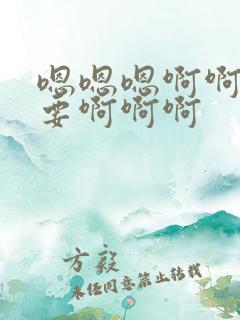 嗯嗯嗯啊啊
要啊啊啊
方毅
未经同意禁止转载